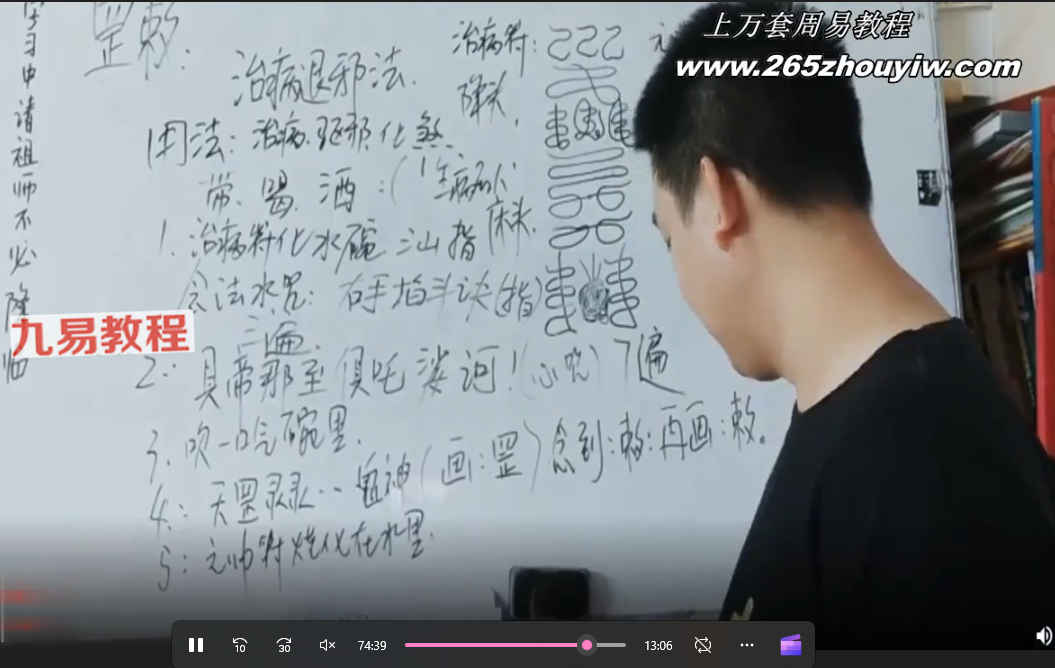 上万套周易教程
www.265zhouyiw.com
罡敕：
治病符：
治病退邪法.
床头.
用法：治病.驱邪.化煞.
带.喝.洒：(
1.治病符化水碗
念法水咒：右手掐斗诀(指)
三遍.
2：具帝那至俱吒娑诃！(心咒)7遍
3.吹一口气碗里.
4：天罡
(画：罡)念到：敕：再画：敕。
5：元帅符烧化在水里.
学习中请祖师不必降临
九易教程
10
30
74:39
13:06